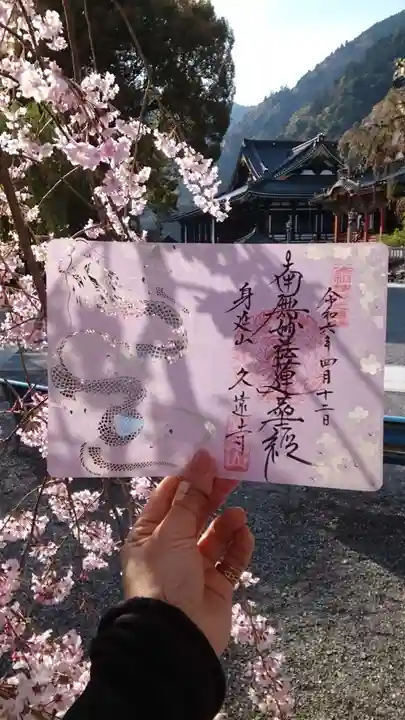 令和六年四月十二日
南無妙法蓮華経
身延山
久遠寺